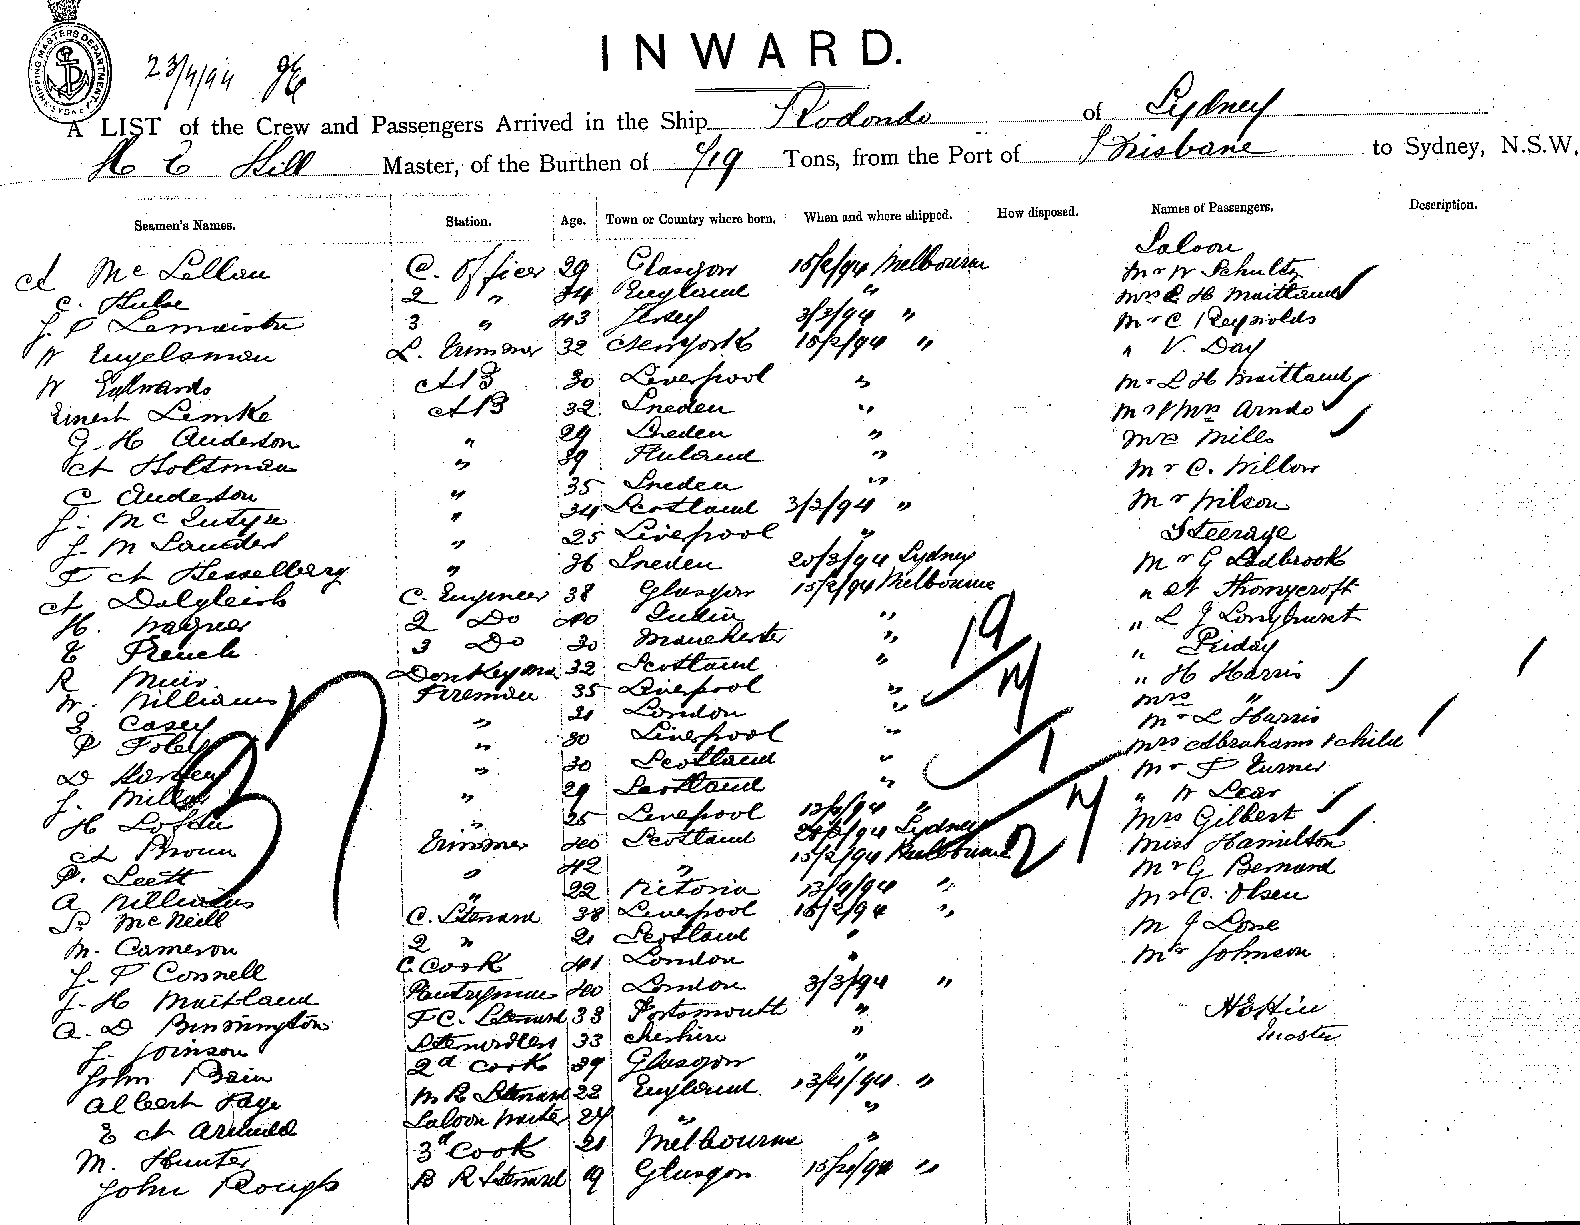 SHIPPING MASTERS DEPARTMENT
23/4/94
INWARD.
A LIST of the Crew and Passengers Arrived in the Ship Rodondo of Sydney
H E Hill Master, of the Burthen of 719 Tons, from the Port of Brisbane to Sydney, N.S.W.
Seamen's Names. Station. Age. Town or Country where born. When and where shipped. How disposed. Names of Passengers. Description.
Saloon
A McLellan C. Officer 29 Glasgow 15/2/94 Melbourne Mr W Schultz
C. Hulse 2 " 34 England " Mrs L H Maitland
J. P Lemaistre 3 " 43 Jersey 3/3/94 " Mr C Reynolds
W Engelsman L. Trimmer 32 New York 15/2/94 " " V. Day
W Edwards AB 30 Liverpool " Mr L H Maitland
Ernest Lemke AB 32 Sweden " Mr & Mrs Arndo
G. H Anderson " 29 Sweden " Mrs Mills
A Holtman " 39 Finland " Mr C. Willow
C Anderson " 35 Sweden " Mr Wilson
J. McIntyre " 34 Scotland 3/3/94 "
Steerage
J. M Saunders " 25 Liverpool " Mr G Ladbrook
F A Hesselberg " 36 Sweden 20/3/94 Sydney " A Thornycroft
A Dalgleish C. Engineer 38 Glasgow 15/2/94 Melbourne " L J Longhurst
H. Wagner 2 Do 40 Dublin " " Friday
E French 3 Do 30 Manchester " " H Harris
R Muir Donkeyman 32 Scotland " Mrs "
W. Williams Fireman 35 Liverpool " Mr L Harris
E Casey " 31 London " Mrs Abrahams & child
P Foley " 30 Liverpool " Mr F Turner
D Hartley " 30 Scotland " " W Lear
J. Miller " 29 Scotland " Mrs Gilbert
H Loftu " 25 Liverpool 13/4/94 " Miss Hamilton
A Brown Trimmer 40 Scotland Sydney Mr G Bernard
P. Leett " 42 " 15/2/94 Melbourne Mr C. Olsen
A Williams " 22 Victoria 13/4/94 " M J Lone
D. McNeill C. Steward 38 Liverpool 15/2/94 " Mr Johnson
M. Cameron 2 " 21 Scotland "
J. P Connell C Cook 41 London "
J. H Maitland Pantryman 40 London 3/3/94 " H E Hill
A. D Binnington F C. Steward 33 Portsmouth " Master
J. Joinson Stewardess 33 Cheshire "
John Bain 2d Cook 39 Glasgow "
Albert Page M R Steward 22 England 13/4/94 "
E A Arnold Saloon Waiter 24 " "
M. Hunter 3d Cook 21 Melbourne "
John Rough B R Steward 19 Glasgow "
37
19